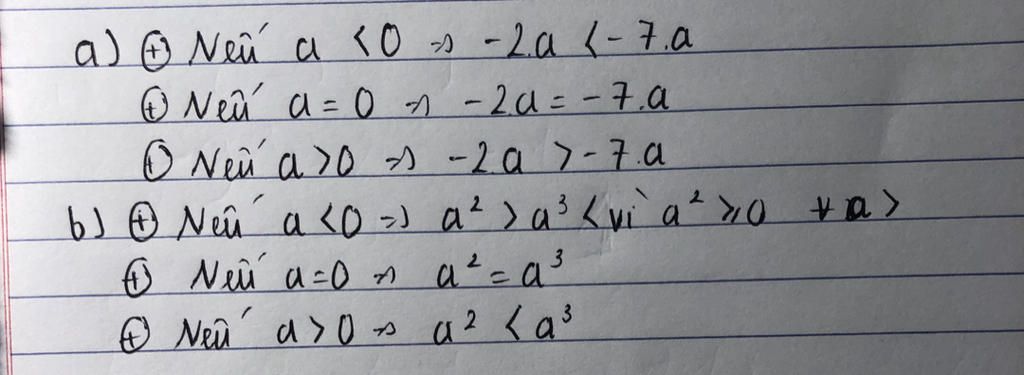 a) ⊕ Nếu a < 0 => -2.a < -7.a
⊕ Nếu a = 0 => -2.a = -7.a
⊕ Nếu a > 0 => -2.a > -7.a
b) ⊕ Nếu a < 0 => a² > a³ <vì a² ≥ 0 ∀ a>
⊕ Nếu a = 0 => a² = a³
⊕ Nếu a > 0 => a² < a³